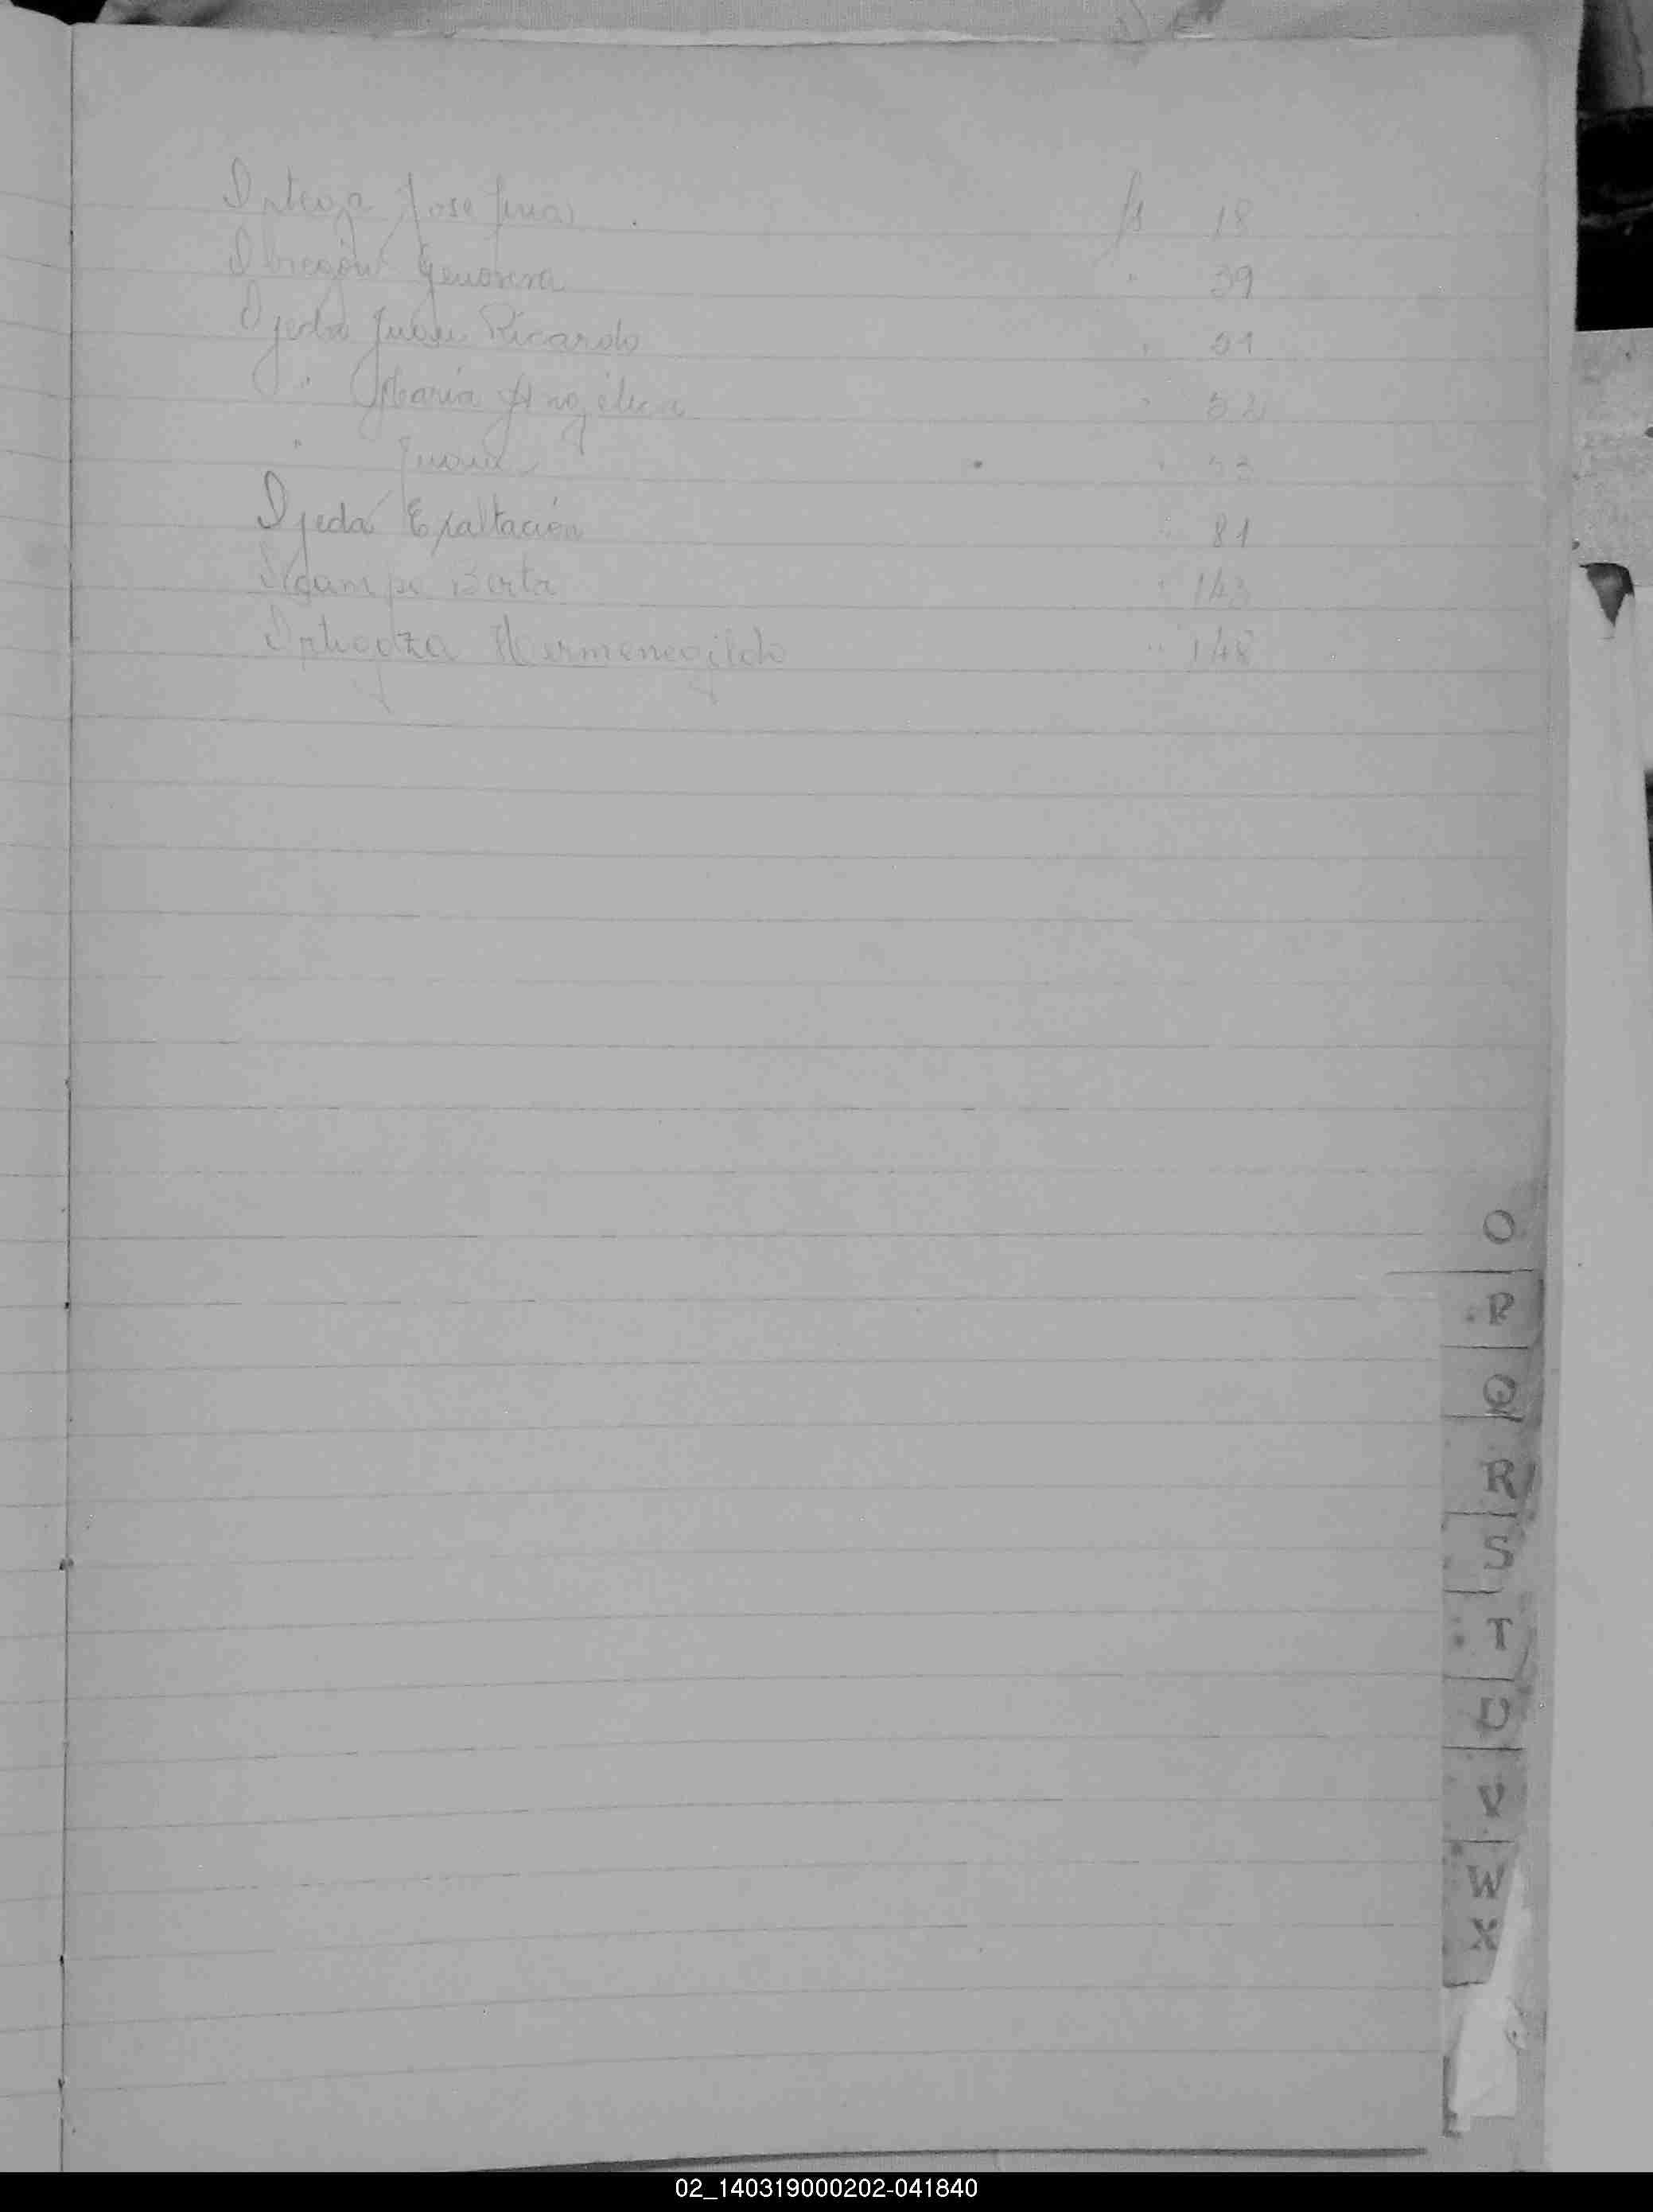 Ortega Josefina fs 18
Obregón Genoveva " 39
Ojeda Juan Ricardo " 51
" María Angélica " 52
" Juana " 53
Ojeda Exaltación " 81
Berta " 143
Hermenegildo " 148
O
P
Q
R
S
T
U
V
W
X
02_140319000202-041840